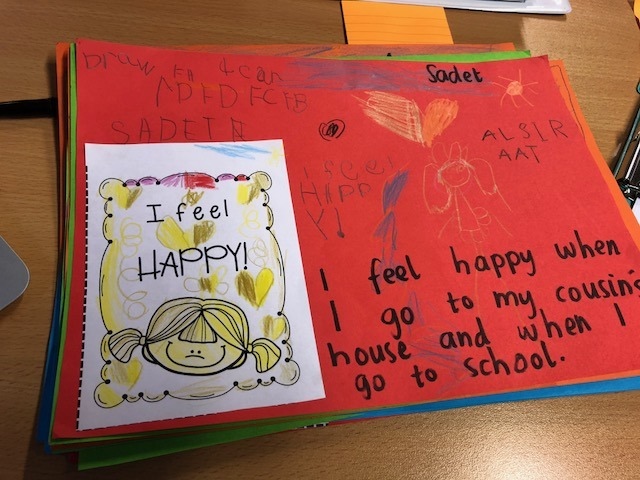 Draw
Sadet
SADET
ALSLR
AAT
I feel
HAPP
Y!
I feel
HAPPY!
I feel happy when
I go to my cousins
house and when I
go to school.